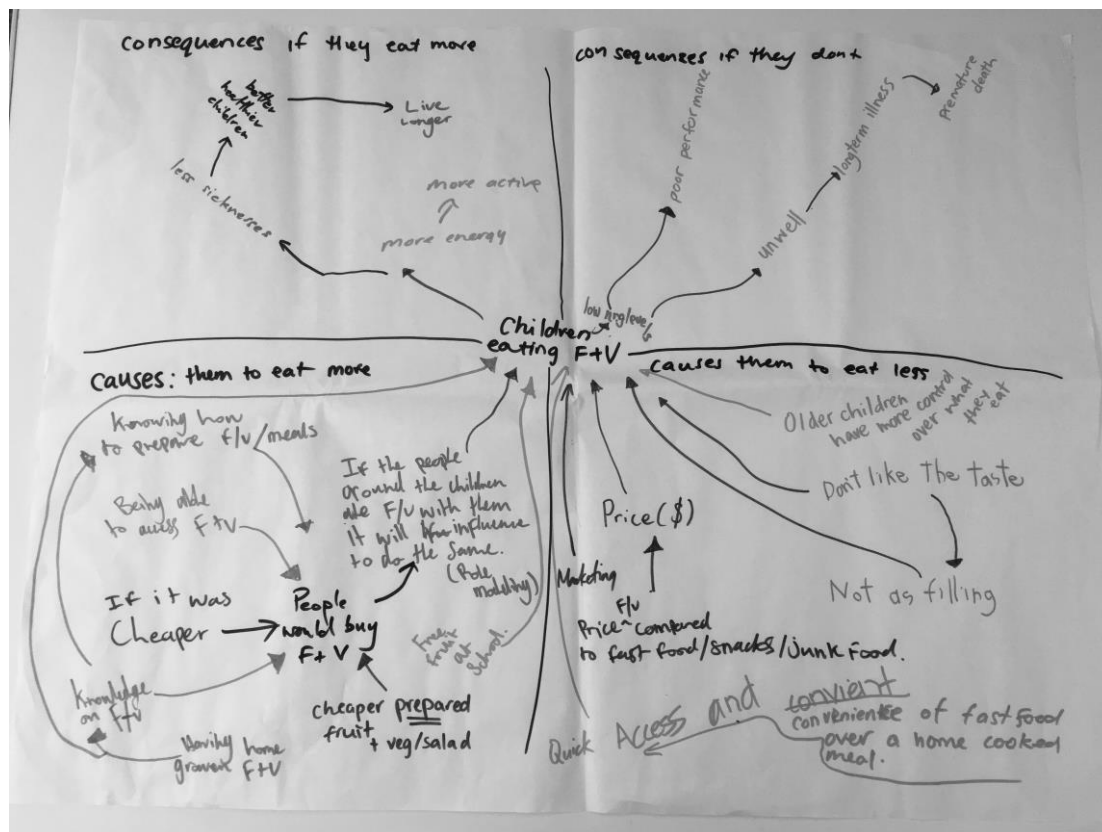 consequences if they eat more
better
healthier
children
Live
Longer
less sicknesses
more active
more energy
consequenses if they dont
poor performance
longterm illness
premature
death
unwell
Children
eating F+V
causes: them to eat more
Knowing how
to prepare f/v/meals
Being able
to access F+V
If it was
Cheaper
People
would buy
F+V
If the people
around the children
ate F/V with them
it will influence
to do the same.
(Role
modeling)
Free
fruit
at
School.
Knowledge
on F+V
Having home
grown F+V
cheaper prepared
fruit
+ veg/salad
causes them to eat less
Older children
have more control
over what
they
eat
Don't like The taste
Not as filling
Price($)
Marketing
F/V
Price compared
to fast food/snacks/junk food.
Quick Access and convient
convenience of fast food
over a home cooked
meal.